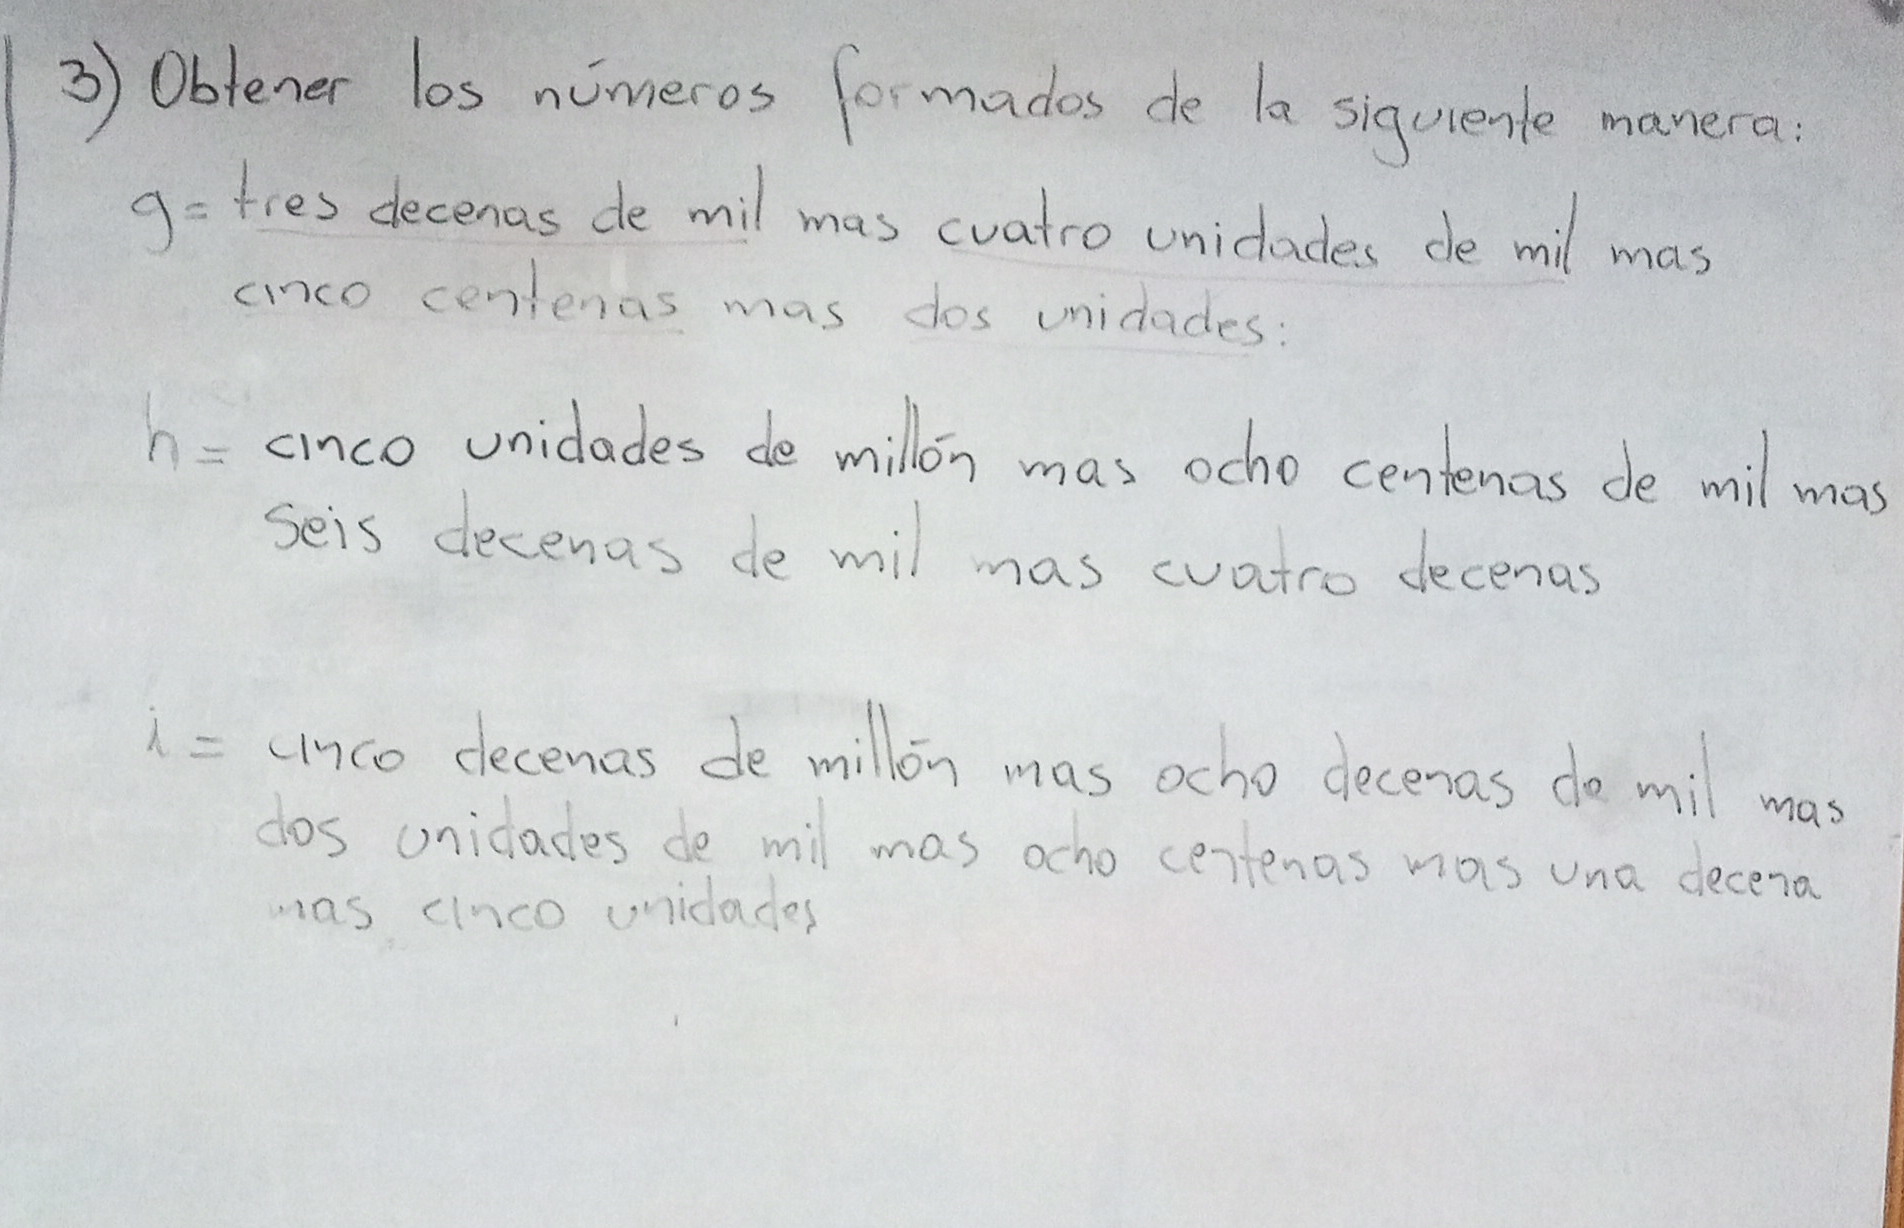 3) Obtener los números formados de la siguiente manera:
g= tres decenas de mil mas cuatro unidades de mil mas
cinco centenas mas dos unidades:
h= cinco unidades de millón mas ocho centenas de mil mas
seis decenas de mil mas cuatro decenas
i= cinco decenas de millón mas ocho decenas de mil mas
dos unidades de mil mas ocho centenas mas una decena
mas cinco unidades